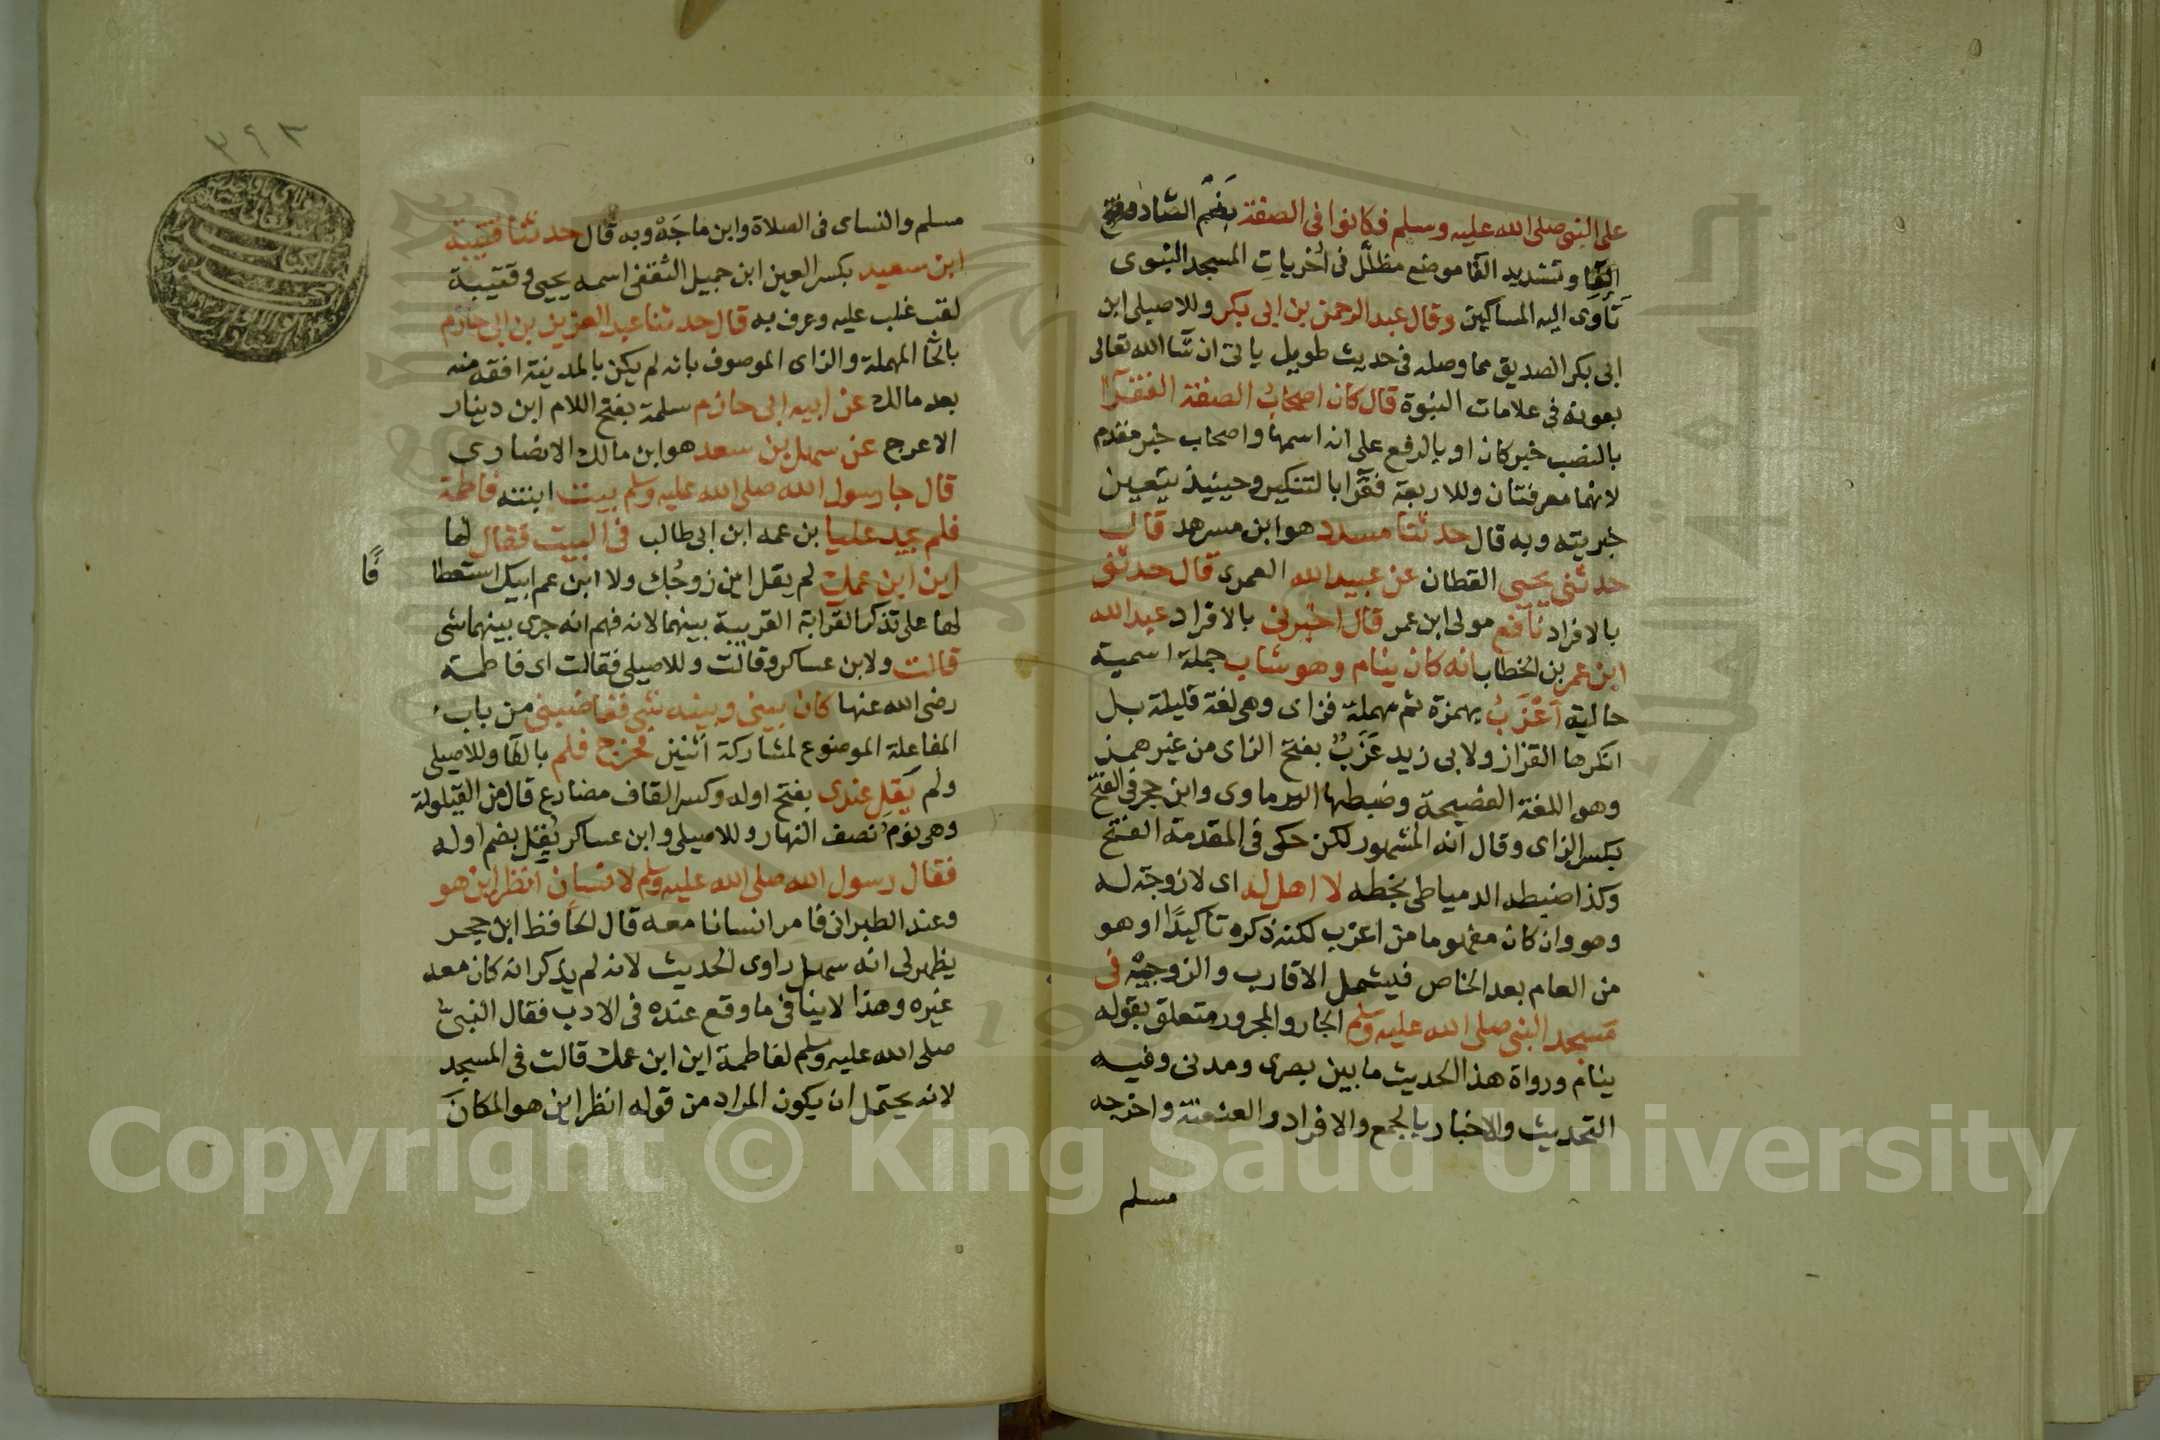 على النبي صلى الله عليه وسلم فكانوا في الصفة بضم الصاد وفتح
الفا وتشديد الفا موضع مظلل في أخريات المسجد النبوى
تأوى اليه المساكين وقال عبد الرحمن بن ابى بكر وللاصيلى ابن
ابى بكر الصديق مما وصله في حديث طويل ياتى ان شا الله تعالى
بعونه في علامات النبوة قال كان اصحاب الصفة الفقرآ
بالنصب خبر كان او بالرفع على انه اسمها واصحاب خبر مقدم
لانهما معرفتان وللاربعة فقرا بالتنكير وحينيذ يتعين
خبريته وبه قال حدثنا مسدد هو ابن مسرهد قال
حدثنى يحيى القطان عن عبيد الله العمرى قال حدثنى
بالافراد نافع مولى ابن عمر قال اخبرنى بالافراد عبد الله
ابن عمر بن الخطاب انه كان ينام وهو شاب جملة اسمية
حالية أعزب بهمزة ثم مهملة فزاى وهى لغة قليلة بل
انكرها القزاز ولابى زيد عزب بفتح الزاى من غير همز
وهو اللغة الفصيحة وضبطها البرماوى وابن حجر في الفتح
بكسر الزاى وقال انه المشهور لكن حكى في المقدمة الفتح
وكذا ضبطه الدمياطى بخطه لا اهل له اى لا زوجة له
وهو وان كان مفهوما من اعزب لكنه ذكره تأكيدًا او هو
من العام بعد الخاص فيشمل الاقارب والزوجة في
مسجد النبى صلى الله عليه وسلم الجار والمجرور متعلق بقوله
ينام ورواة هذا الحديث ما بين بصرى ومدنى وفيه
التحديث والاخبار بالجمع والافراد والعنعنة واخرجه
مسلم
٣٩٣
مسلم والنساى في الصلاة وابن ماجه وبه قال حدثنا قتيبة
ابن سعيد بكسر العين ابن جميل الثقفى اسمه يحيى وقتيبة
لقب غلب عليه وعرف به قال حدثنا عبد العزيز بن ابى حازم
بالحا المهملة والزاى الموصوف بانه لم يكن بالمدينة افقه منه
بعد مالك عن ابيه ابى حازم سلمة بفتح اللام ابن دينار
الاعرج عن سهل بن سعد هو ابن مالك الانصارى
قال جا رسول الله صلى الله عليه وسلم بيت ابنته فاطمة
فلم يجد عليا بن عمه ابن ابى طالب في البيت فقال لها
اين ابن عمك لم يقل اين زوجك ولا ابن عم ابيك استعطا
فًا
لها على تذكر القرابة القريبة بينهما لانه فهم انه جرى بينهما شى
قالت ولابن عساكر وقالت وللاصيلى فقالت اى فاطمة
رضى الله عنها كان بينى وبينه شى فغاضبنى من باب
المفاعلة الموضوع لمشاركة اثنين فخرج فلم بالفا وللاصيلى
ولم يقل عندى بفتح اوله وكسر القاف مضارع قال من القيلولة
وهى نوم نصف النهار وللاصيلى وابن عساكر يُقِل بضم اوله
فقال رسول الله صلى الله عليه وسلم لانسان انظر اين هو
وعند الطبرانى فامر انسانا معه قال الحافظ ابن حجر
يظهر لى انه سهل راوى الحديث لانه لم يذكر انه كان معه
غيره وهذا لا ينافى ما وقع عنده في الادب فقال النبىّ
صلى الله عليه وسلم لفاطمة اين ابن عمك قالت في المسجد
لانه يحتمل ان يكون المراد من قوله انظر اين هو المكان
Copyright © King Saud University